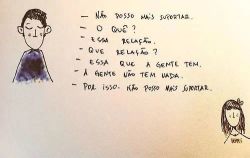 — NÃO POSSO MAIS SUPORTAR.
— O QUÊ?
— ESSA RELAÇÃO.
— QUE RELAÇÃO?
— ESSA QUE A GENTE TEM.
— A GENTE NÃO TEM NADA.
— POR ISSO. NÃO POSSO MAIS SUPORTAR.